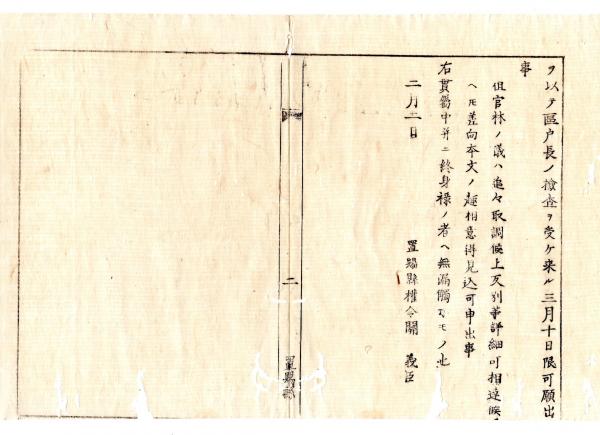 ヲ以テ區戸長ノ撿查ヲ受ケ来ル三月十日限可願出
事
但官林ノ議ハ追々取調候上反別等詳細可相達候
ヘモ差向本文ノ趣相意得見込可申出事
右貫屬中并ニ終身禄ノ者ヘ無漏觸ルモノ也
二月二日
置賜縣権令關 義臣
二
置賜縣